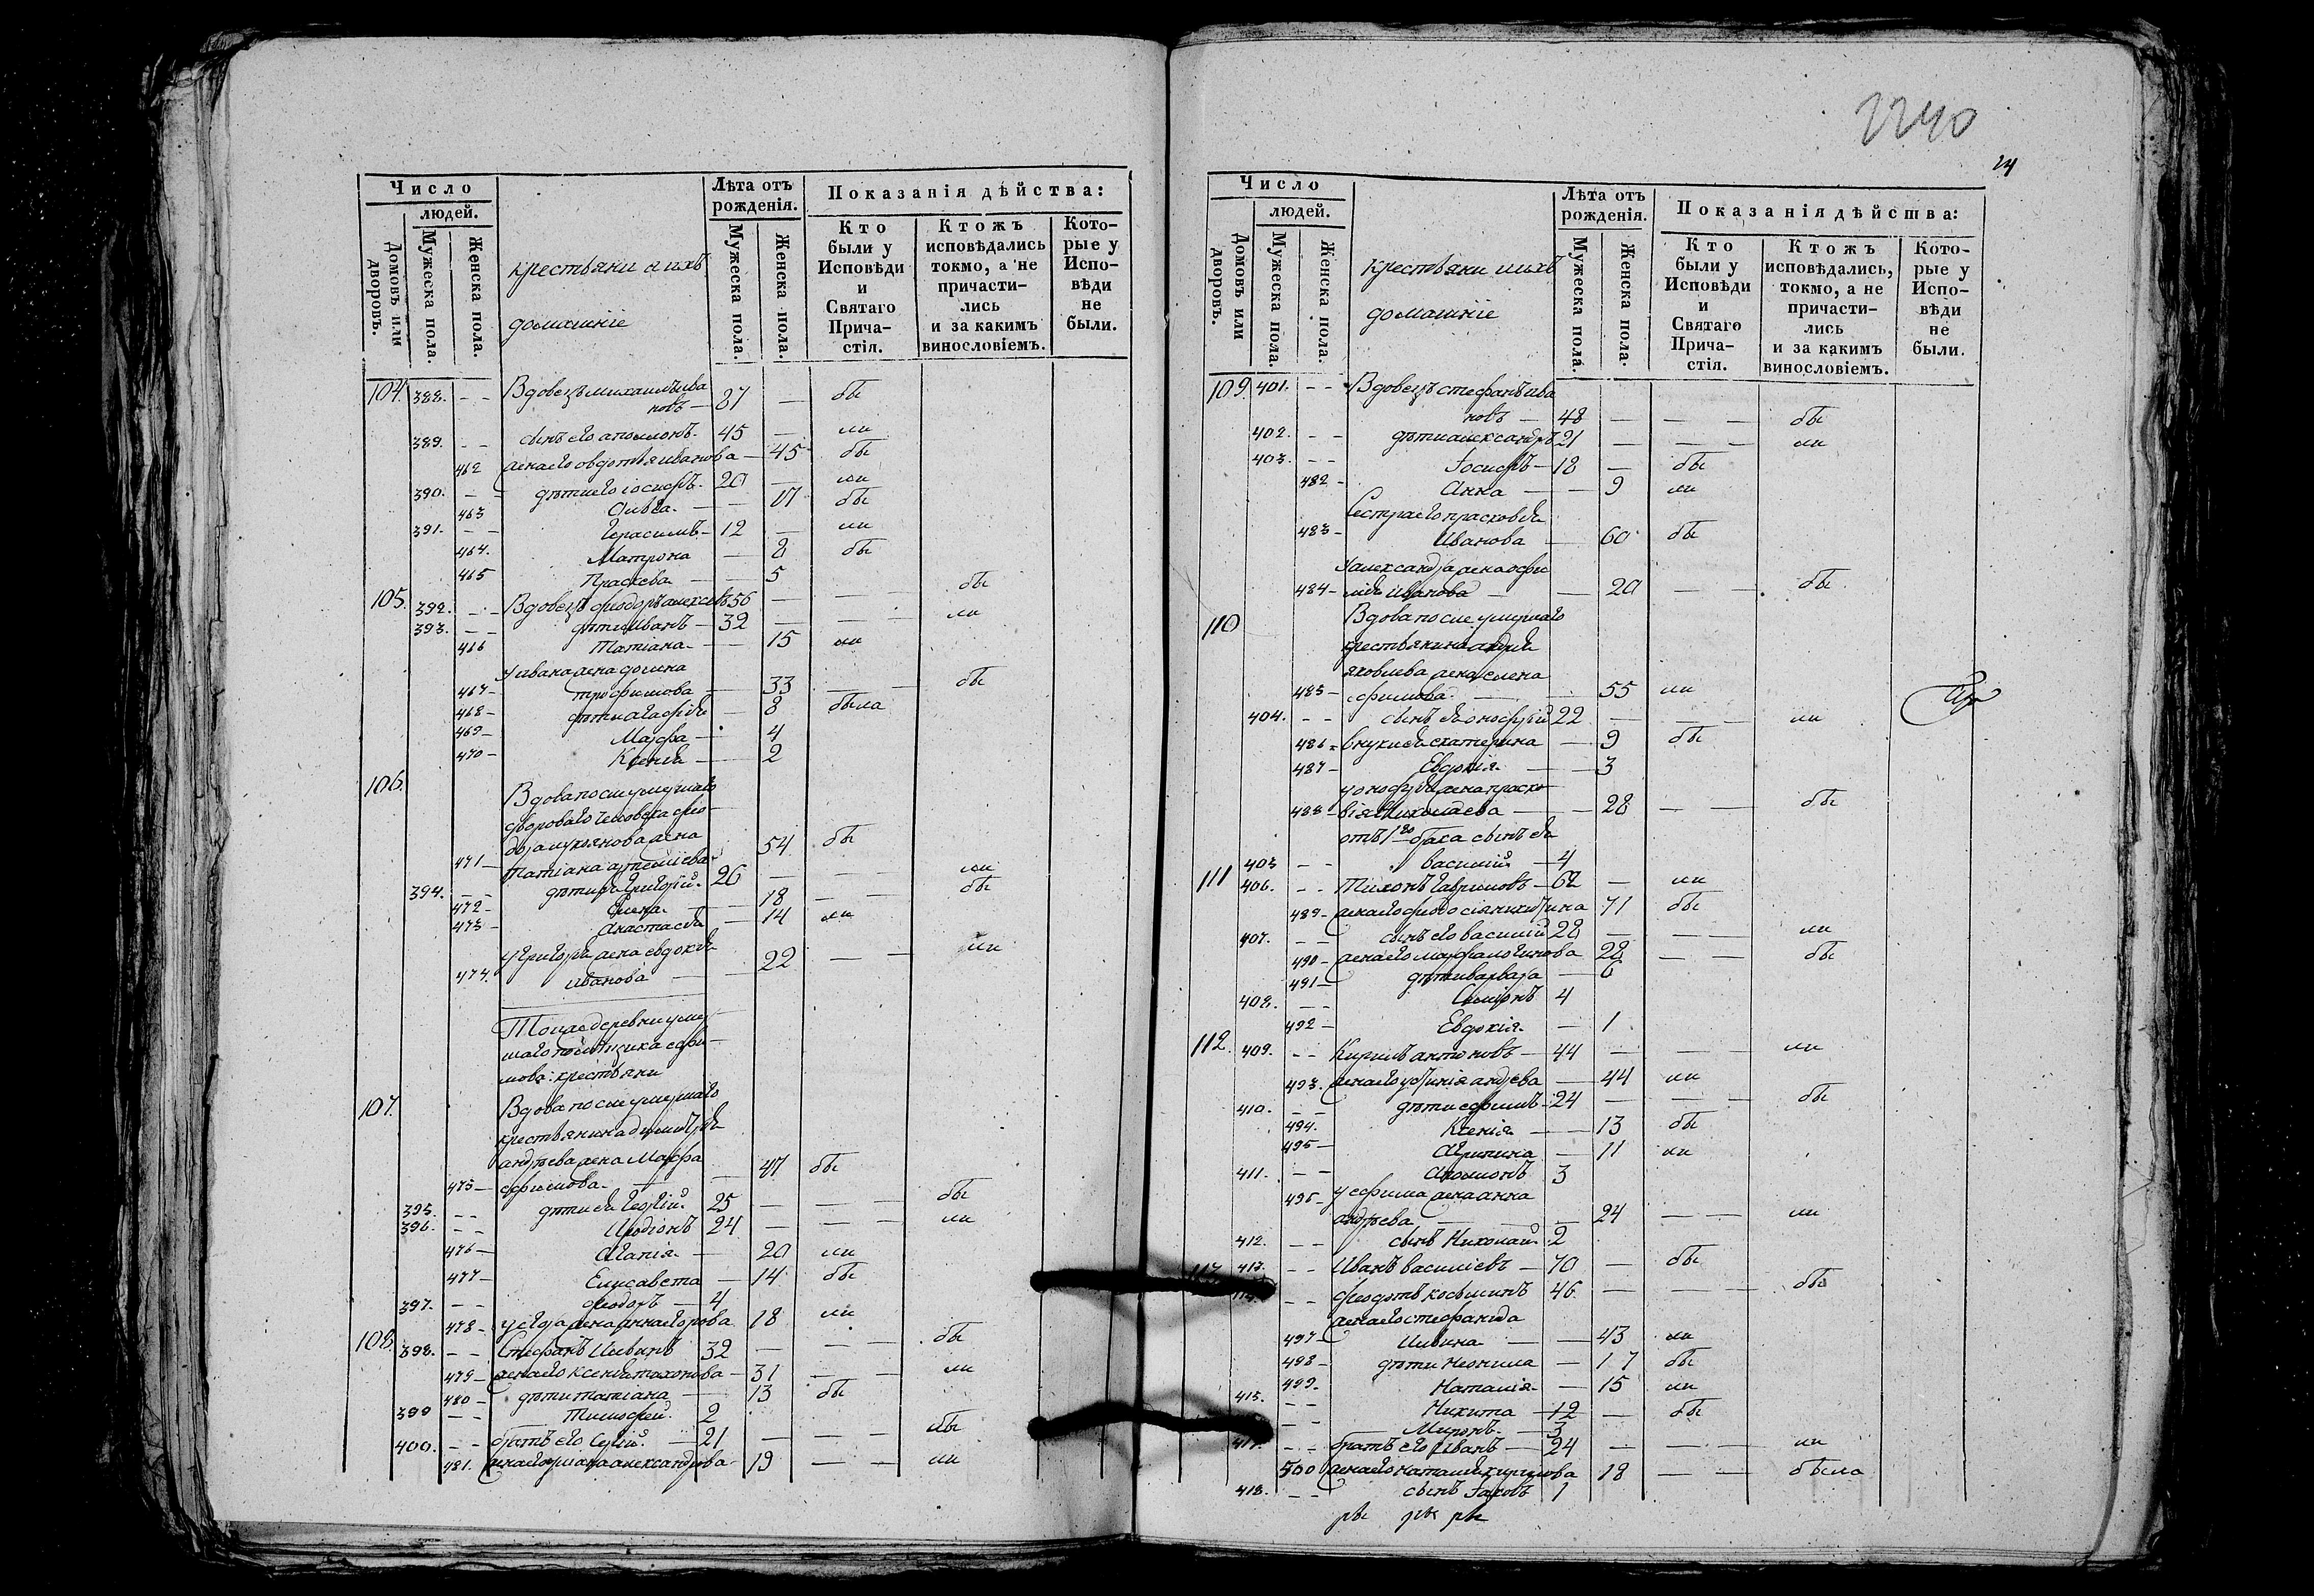 Число
людей.
Домовъ или дворовъ.
Мужеска пола.
Женска пола.
крестьяни и ихъ
домашніе
Лѣта отъ рожденія.
Мужеска пола.
Женска пола.
Показанія дѣйства:
Кто были у Исповѣди и Святаго Прича-стія.
Ктожъ исповѣдались токмо, а не причасти-лись и за какимъ винословіемъ.
Кото-рые у Испо-вѣди не были.
104. 388. - - Вдовецъ михаилъ ива
новъ — 87 — бы
389. - - сынъ его аполлонъ. 45 — ли
462 жена его овдотья иванова — 45 бы
390. - - дѣти его іосифъ. 20 — ли
463 — — 17 бы
391. - - Герасимъ — 12 — ли
464. Матрона — 8 бы
465 Праскева — — 5
105. 392. - - Вдовецъ феодоръ алексѣ 56 — — — бы
393. - - дѣти иванъ — 32 — — — ли
466 Татіана — — 15 ли
у ивана жена домна
467 - трофимова — 33 — — бы
468 - дѣти агафія — 8 была
469 - Марфа — 4
470 - Ксенія — 2
106. Вдова после умершаго
двороваго человека фео
дора лукьянова жена
471 - татіана артеміева — 54 бы
394. - - дѣти ея григорій. 26 — — — ли
472 - Елена — — 18 — — бы
473 - Анастасія — 14 ли
у григорья жена евдокія
474. иванова — 22 — — ли
Тоя же деревни умер
шаго помѣщика ефи
мова: крестьяни
107. Вдова после умершаго
крестьянина димитрія
андреева жена Марфа
475 — ефимова. — — 47 бы
395. - - дѣти ея Георгій. 25 — — — бы
396. - - Иродіонъ 24 — — — ли
476 — Агапія — 20 ли
477 — Елисавета — 14 бы
397. - - феодоръ — 4
478 - у егора жена анна егорова 18 ли
108. 398. - - Стефанъ 32 — — — бы
479 - жена его ксенія тихонова — 31 — — ли
480 - дѣти татіана — 13 бы
399 - - Тимофей. 2
400. - - братъ его Сергій. — 21 — — — бы
481. жена его александрова — 19 — — ли
2240
24
Число
людей.
Домовъ или дворовъ.
Мужеска пола.
Женска пола.
крестьяни и ихъ
домашніе
Лѣта отъ рожденія.
Мужеска пола.
Женска пола.
Показанія дѣйства:
Кто были у Исповѣди и Святаго Прича-стія.
Ктожъ исповѣдались, токмо, а не причасти-лись и за какимъ винословіемъ.
Кото-рые у Испо-вѣди не были.
109. 401. - - Вдовецъ стефанъ ива
новъ — 48 — — — бы
402. - - дѣти александръ 21 — — — ли
403. - - Іосифъ — 18 — бы
482 - Анна — — 9 ли
Сестра его прасковья
483 - Иванова — 60 бы
у александра жена
484 - Иванова — — 20 — — бы
110 Вдова после умершаго
крестьянина андрея
яковлева жена елена
485 - ефимова — — 55 ли
404. - - сынъ ея онофрій 22 — — — ли
486 - внуки ея екатерина — 9 бы
487 - Евдокія — — 3
у онофрія жена праско
488 - вія Николаева — — 28 — — бы
отъ 1го брака сынъ ея
405 - - василій — 4
111 406. - - Тихонъ Гавриловъ — 62 — ли
489 - жена его феодосія никитина 71 бы
407. - - сынъ его василий 28 — — — ли
490 - жена его марфа логинова 28 — — бы
491 — дѣти варвара — 6
408. - - Симіонъ 4
492 — Евдокія — 1
112. 409. - - Кирилъ антоновъ — 44 — — — ли
493. жена его устинія андреева — 44 ли
410. - - дѣти ефимъ — 24 — — — бы
494. Ксенія — 13 бы
495 — Агрипина — 11 ли
411. - - Аполлонъ 3
496 - у ефима жена анна
андреева — — 24 — — ли
412. - - сынъ Николай 2
113 413. - - Иванъ василіевъ — 70 — бы
414. - - феодотъ косьминъ 46 — — — бы
жена его стефанида
497 — — — 43 ли
498 - дѣти Неонила — 17 бы
499. Наталія — 15 ли
415. - - Никита — 12 — бы
- - Миронъ. — 3
417. - - братъ его Иванъ — 24 — — — ли
500 жена его наталія кирилова 18 — — была
418. - - сынъ Іаковъ 1